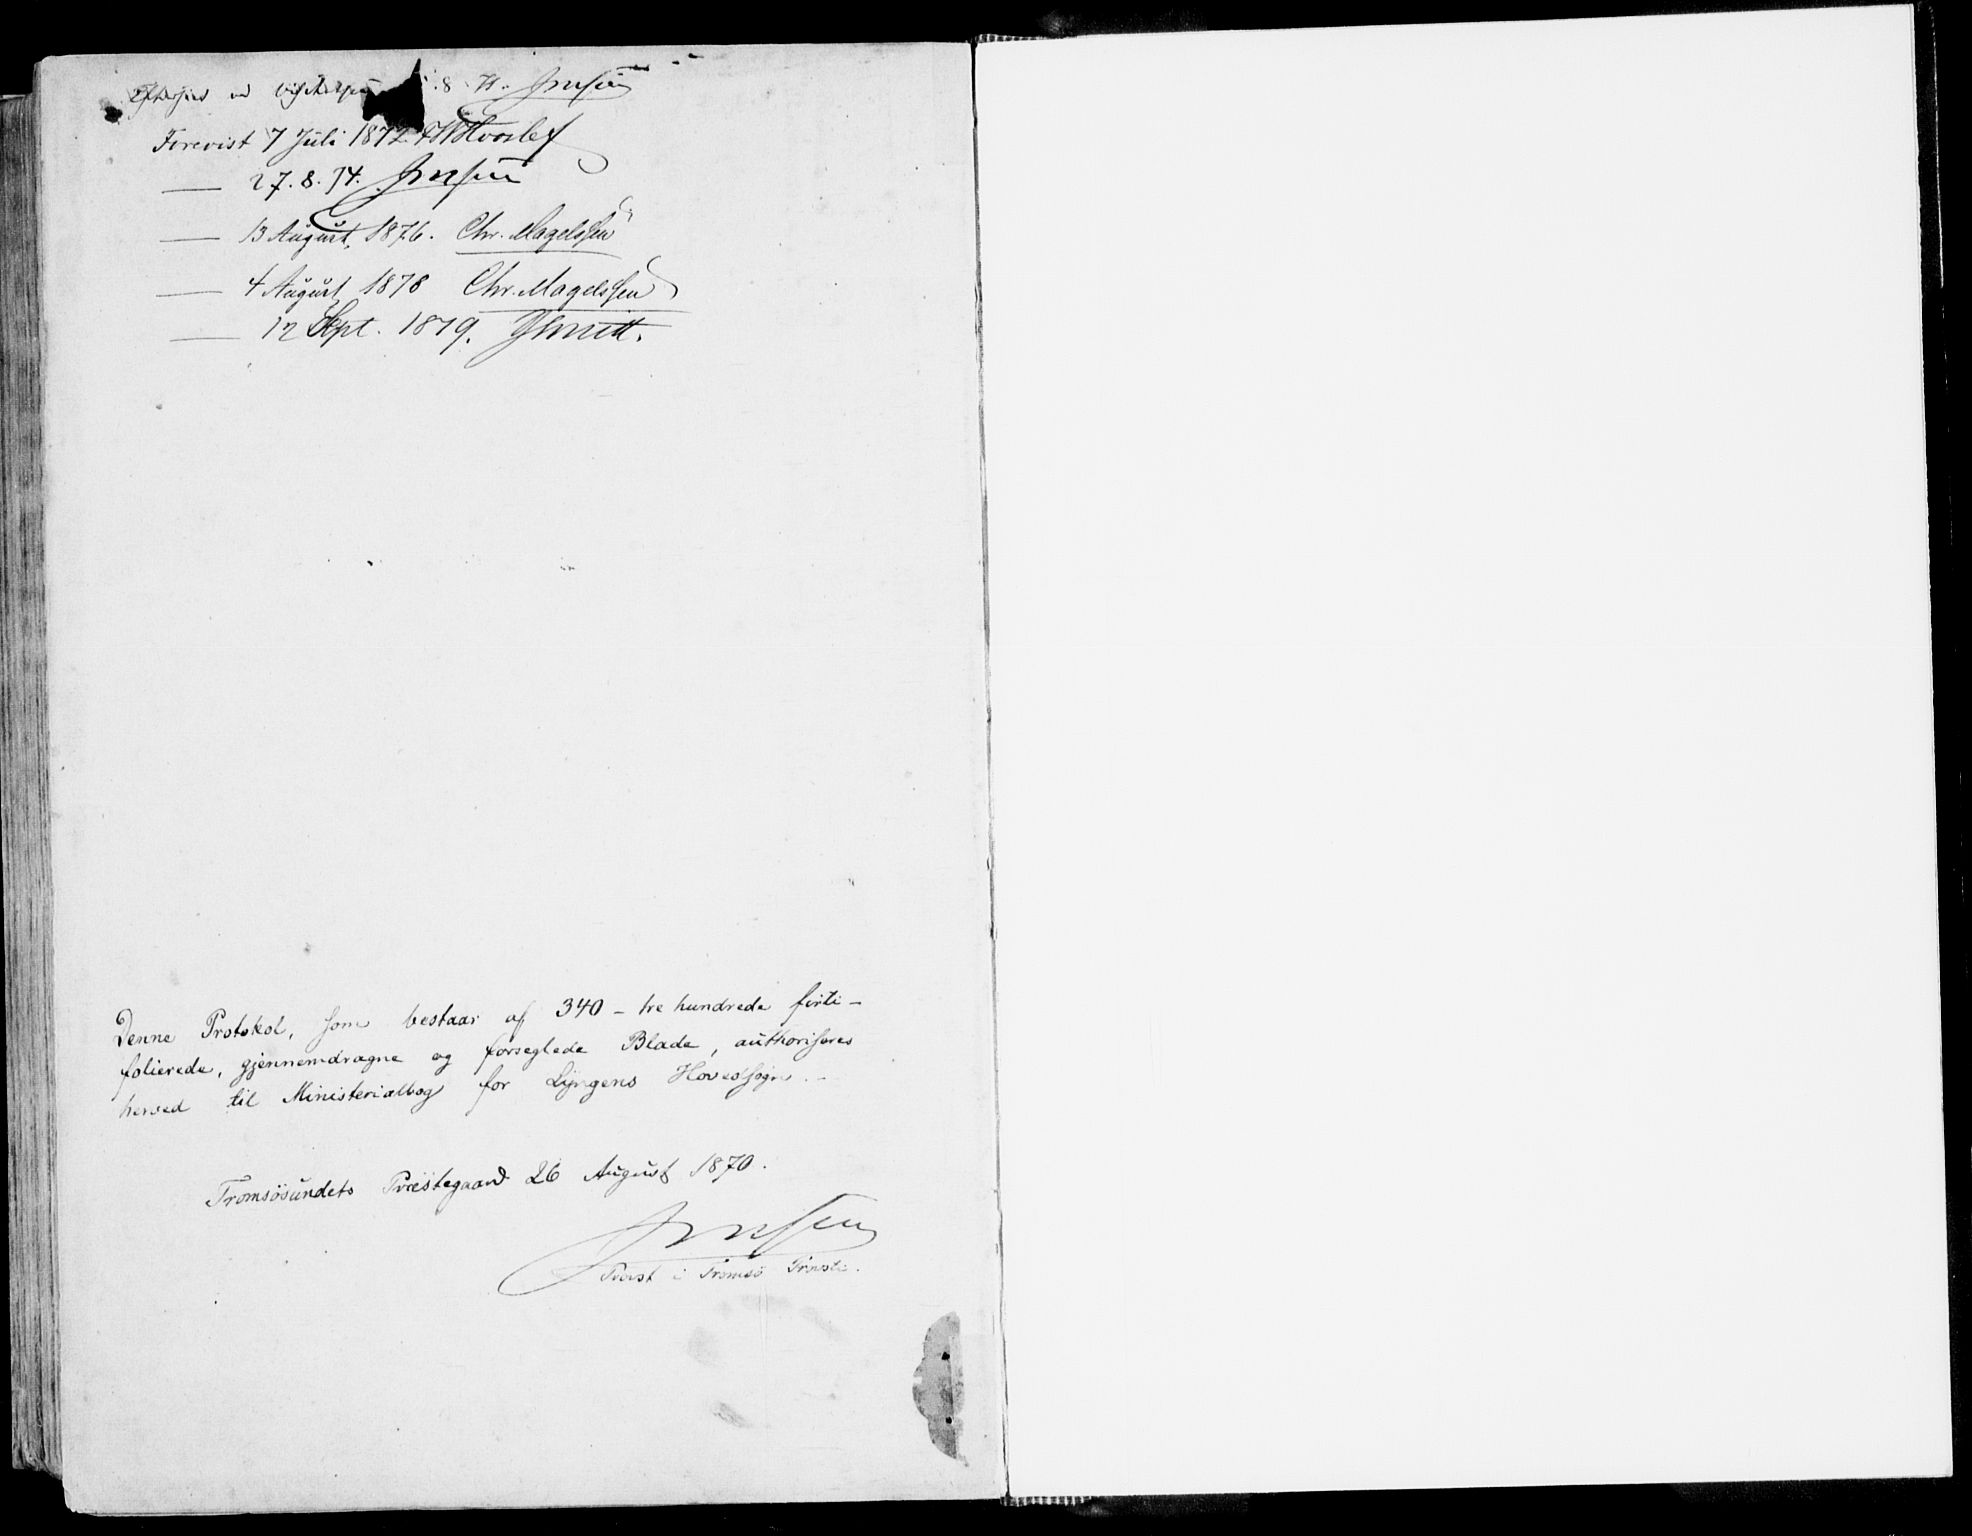 Efterseet ved Visitatsen 8. 71. Jensen
Forevist 7 Juli 1872. FWHvoslef
— 27.8.74. Jensen
— 13 August 1876. Chr. Magelssen
— 4 August 1878 Chr. Magelssen
— 12 Sept. 1879. JSmitt.
Denne Protokol, som bestaar af 340 - tre hundrede firti -
folierede, gjennemdragne og forseglede Blade, authoriseres
herved til Ministerialbog for Lyngens Hovedsogn. -
Tromsösundets Præstegaard 26 August 1870.
Jensen
Provst i Tromsö Provsti.